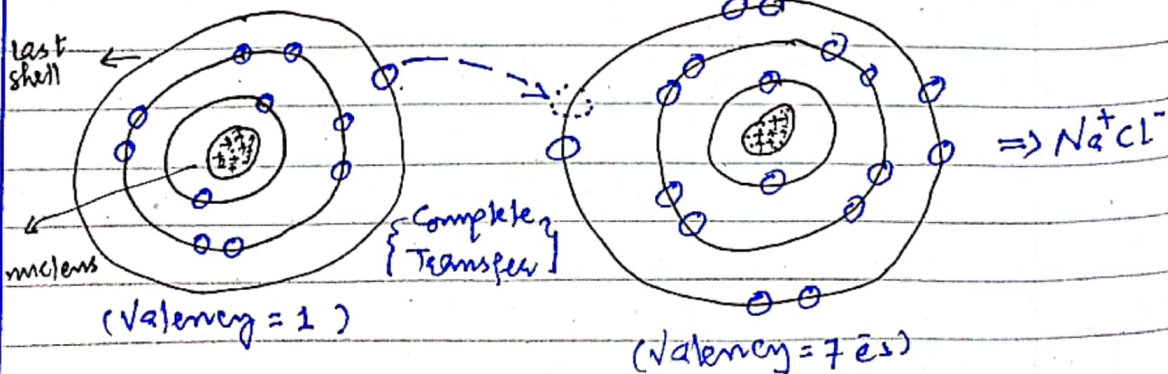 last
shell
nucleus
{Complete
Transfer}
(Valency = 1)
(Valency = 7 ēs)
=> Na⁺Cl⁻